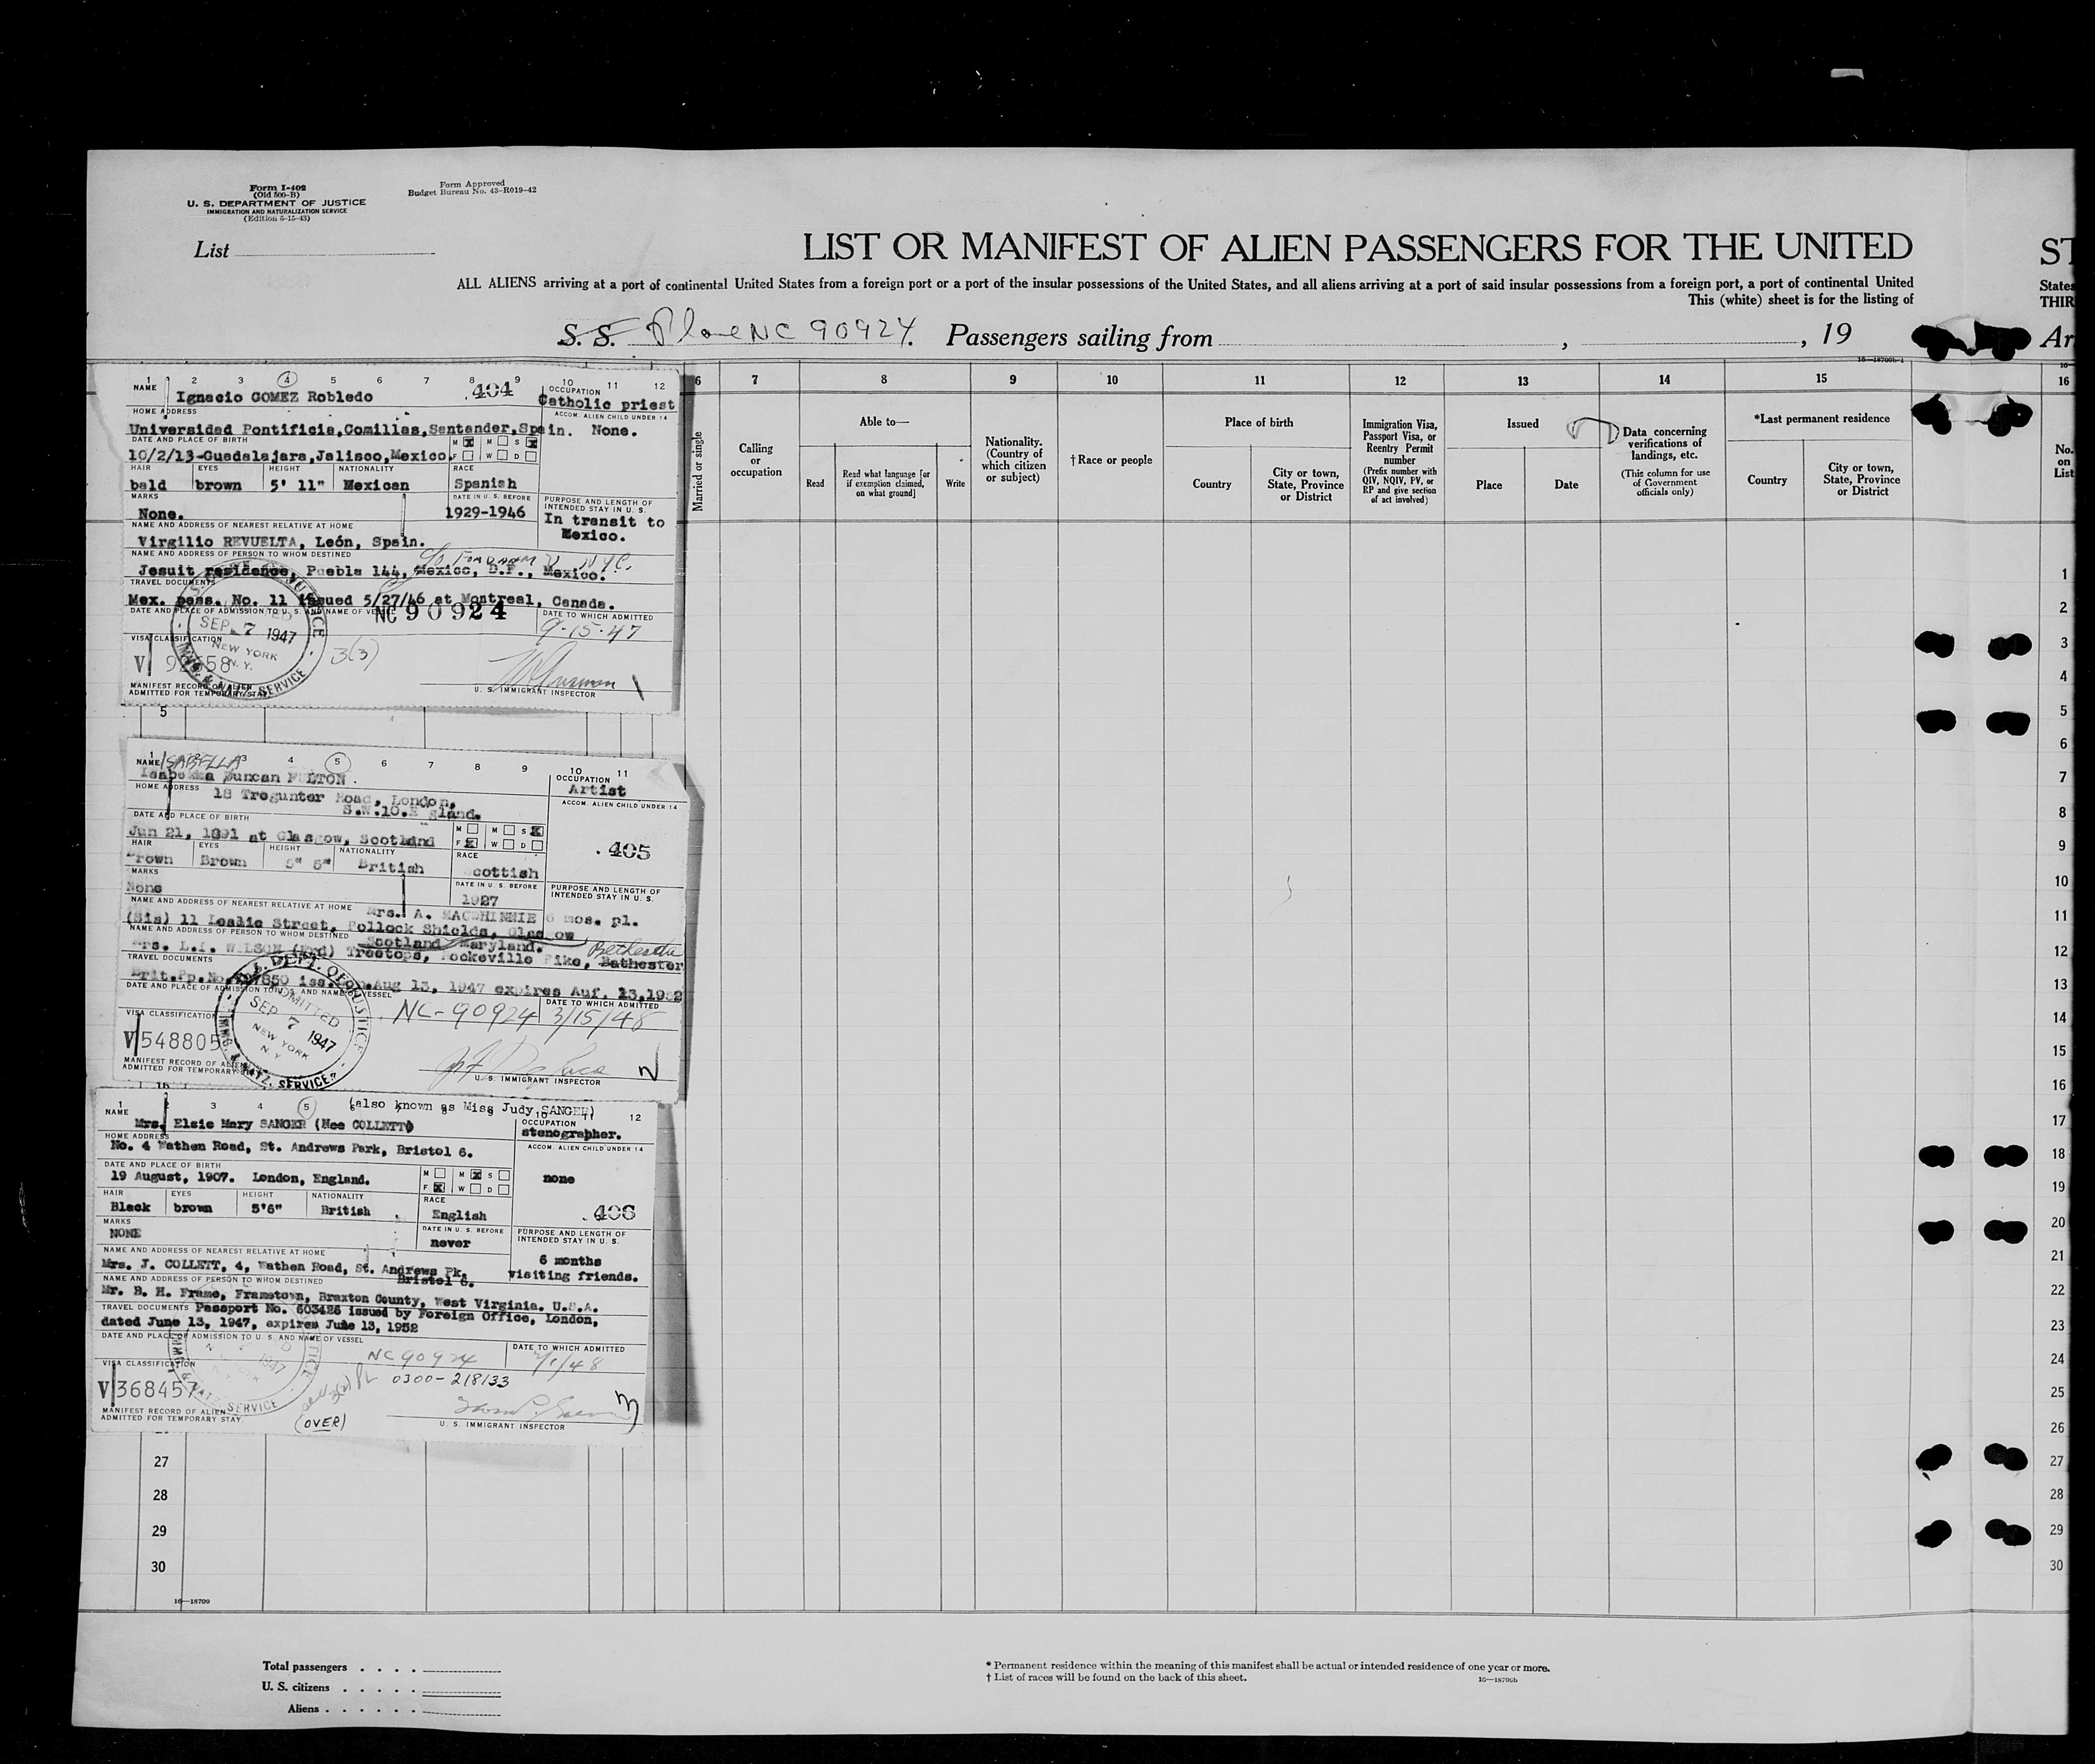 Form I-402
(Old 500-B)
U. S. DEPARTMENT OF JUSTICE
IMMIGRATION AND NATURALIZATION SERVICE
(Edition 5-15-43)
Form Approved
Budget Bureau No. 43-R019-42
List
LIST OR MANIFEST OF ALIEN PASSENGERS FOR THE UNITED
ST
ALL ALIENS arriving at a port of continental United States from a foreign port or a port of the insular possessions of the United States, and all aliens arriving at a port of said insular possessions from a foreign port, a port of continental United
States
This (white) sheet is for the listing of
THIR
S. S. Plane NC 90924. Passengers sailing from , , 19
Ar
16—18700b-1
1 2 3 4 5 6 7 8 9 10 11 12
NAME Ignacio GOMEZ Robledo
404
OCCUPATION
Catholic priest
HOME ADDRESS
ACCOM. ALIEN CHILD UNDER 14
Universidad Pontificia, Comillas, Santander, Spain. None.
DATE AND PLACE OF BIRTH
M M S
10/2/13-Guadalajara, Jalisco, Mexico.
F W D
HAIR EYES HEIGHT NATIONALITY RACE
bald brown 5' 11" Mexican Spanish
MARKS
DATE IN U. S. BEFORE
PURPOSE AND LENGTH OF
INTENDED STAY IN U. S.
None. 1929-1946
In transit to
Mexico.
NAME AND ADDRESS OF NEAREST RELATIVE AT HOME
Virgilio REVUELTA, León, Spain.
NAME AND ADDRESS OF PERSON TO WHOM DESTINED
c/o Fordham U NYC.
Jesuit residence, Puebla 144, Mexico, D.F., Mexico.
TRAVEL DOCUMENTS
Mex. pass. No. 11 issued 5/27/46 at Montreal, Canada.
DATE AND PLACE OF ADMISSION TO U. S. AND NAME OF VESSEL
NC 90924
DATE TO WHICH ADMITTED
9-15-47
SEP 7 1947
NEW YORK
N. Y.
VISA CLASSIFICATION
3(3)
MANIFEST RECORD OF ALIEN
ADMITTED FOR TEMPORARY STAY
U. S. IMMIGRANT INSPECTOR
5
1 3 4 5 6 7 8 9 10 11
NAME ISABELLA
Isabekka Duncan FULTON.
OCCUPATION
Artist
HOME ADDRESS
18 Tregunter Road, London,
S.W.10.E gland.
ACCOM. ALIEN CHILD UNDER 14
DATE AND PLACE OF BIRTH
M M S
Jun 21, 1891 at Glasgow, Scotland
F W D
405
HAIR EYES HEIGHT NATIONALITY RACE
Brown Brown 5" 5" British Scottish
MARKS
DATE IN U. S. BEFORE
PURPOSE AND LENGTH OF
INTENDED STAY IN U. S.
None 1927
NAME AND ADDRESS OF NEAREST RELATIVE AT HOME
Mrs. A. MACWHINNIE 6 mos. pl.
(Sis) 11 Leslie Street, Pollock Shields, Glasgow
NAME AND ADDRESS OF PERSON TO WHOM DESTINED
Scotland Maryland.
Bethesda
Mrs. L.I. WILSON (Frd) Treetops, Rockeville Pike, Bathester
TRAVEL DOCUMENTS
Aug 13, 1947 expires Auf. 13,1952
DATE AND PLACE OF ADMISSION TO U. S. AND NAME OF VESSEL
DATE TO WHICH ADMITTED
NC-90924 3/15/48
U.S. DEPT. OF JUSTICE
ADMITTED
SEP 7 1947
NEW YORK
N. Y.
IMMG. & NATZ. SERVICE
VISA CLASSIFICATION
V 548805
MANIFEST RECORD OF ALIEN
ADMITTED FOR TEMPORARY STAY
U. S. IMMIGRANT INSPECTOR
1 3 4 5
(also known as Miss Judy SANGER)
10 11 12
NAME
Mrs. Elsie Mary SANGER (Nee COLLETT)
OCCUPATION
stenographer.
HOME ADDRESS
No. 4 Wathen Road, St. Andrews Park, Bristol 6.
ACCOM. ALIEN CHILD UNDER 14
DATE AND PLACE OF BIRTH
M M S
none
19 August, 1907. London, England.
F W D
HAIR EYES HEIGHT NATIONALITY RACE
Black brown 5'6" British English
406
MARKS
DATE IN U. S. BEFORE
PURPOSE AND LENGTH OF
INTENDED STAY IN U. S.
NONE never
NAME AND ADDRESS OF NEAREST RELATIVE AT HOME
6 months
visiting friends.
Mrs. J. COLLETT, 4, Wathen Road, St. Andrews Pk.
Bristol 6.
NAME AND ADDRESS OF PERSON TO WHOM DESTINED
Mr. B. H. Frame, Frametown, Braxton County, West Virginia. U.S.A.
TRAVEL DOCUMENTS Passport No. 603426 issued by Foreign Office, London,
dated June 13, 1947, expires June 13, 1952
DATE AND PLACE OF ADMISSION TO U. S. AND NAME OF VESSEL
DATE TO WHICH ADMITTED
NC 90924
VISA CLASSIFICATION
0300-218133
V 368457
SERVICE
MANIFEST RECORD OF ALIEN
ADMITTED FOR TEMPORARY STAY.
(OVER)
U. S. IMMIGRANT INSPECTOR
27
28
29
30
16—18709
6 7 8 9 10 11 12 13 14 15 16
Married or single
Calling
or
occupation
Able to—
Read
Read what language [or
if exemption claimed,
on what ground]
Write
Nationality.
(Country of
which citizen
or subject)
†Race or people
Place of birth
Country
City or town,
State, Province
or District
Immigration Visa,
Passport Visa, or
Reentry Permit
number
(Prefix number with
QIV, NQIV, PV, or
RP and give section
of act involved)
Issued
Place
Date
Data concerning
verifications of
landings, etc.
(This column for use
of Government
officials only)
*Last permanent residence
Country
City or town,
State, Province
or District
No.
on
List
1
2
3
4
5
6
7
8
9
10
11
12
13
14
15
16
17
18
19
20
21
22
23
24
25
26
27
28
29
30
Total passengers . . . .
U. S. citizens . . . . .
Aliens . . . . . .
* Permanent residence within the meaning of this manifest shall be actual or intended residence of one year or more.
† List of races will be found on the back of this sheet.
16—18700b